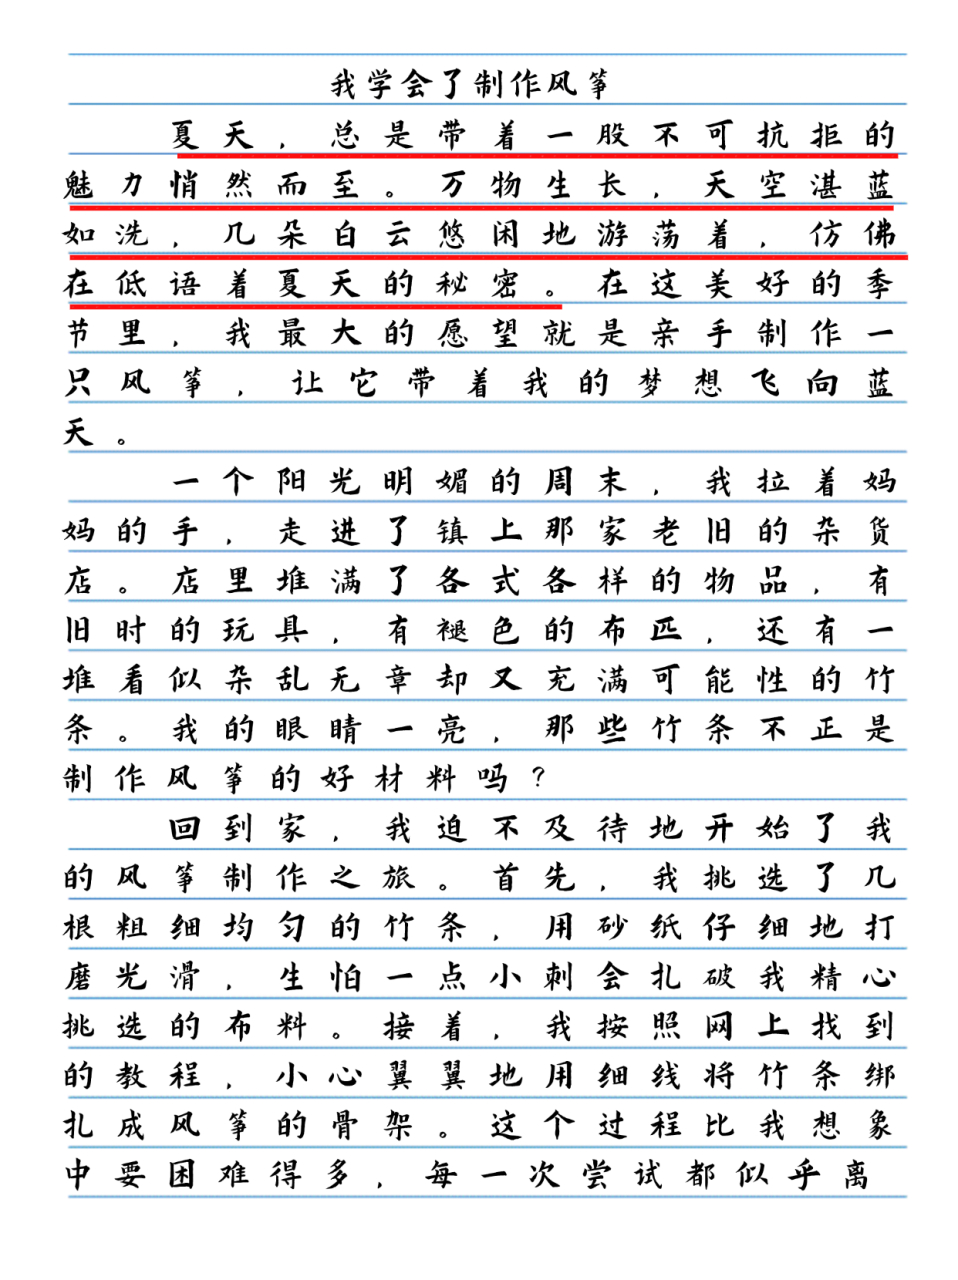 我学会了制作风筝
夏天，总是带着一股不可抗拒的
魅力悄然而至。万物生长，天空湛蓝
如洗，几朵白云悠闲地游荡着，仿佛
在低语着夏天的秘密。在这美好的季
节里，我最大的愿望就是亲手制作一
只风筝，让它带着我的梦想飞向蓝
天。
一个阳光明媚的周末，我拉着妈
妈的手，走进了镇上那家老旧的杂货
店。店里堆满了各式各样的物品，有
旧时的玩具，有褪色的布匹，还有一
堆看似杂乱无章却又充满可能性的竹
条。我的眼睛一亮，那些竹条不正是
制作风筝的好材料吗？
回到家，我迫不及待地开始了我
的风筝制作之旅。首先，我挑选了几
根粗细均匀的竹条，用砂纸仔细地打
磨光滑，生怕一点小刺会扎破我精心
挑选的布料。接着，我按照网上找到
的教程，小心翼翼地用细线将竹条绑
扎成风筝的骨架。这个过程比我想象
中要困难得多，每一次尝试都似乎离